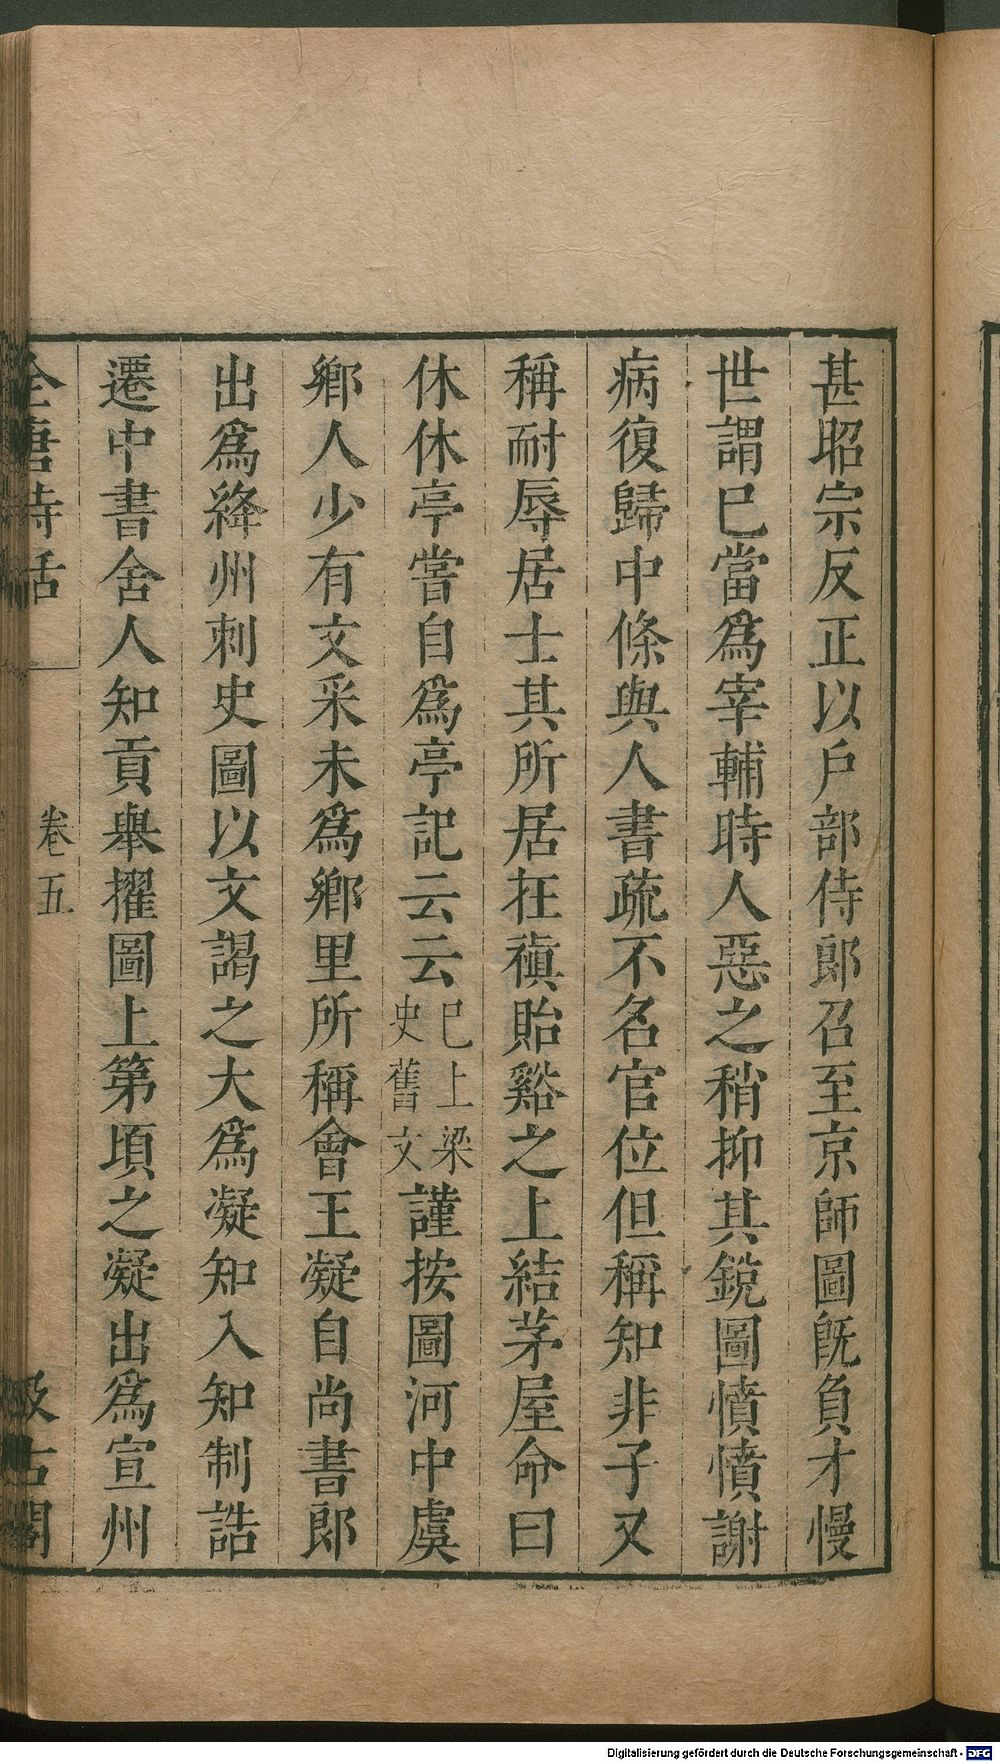 甚昭宗反正以戶部侍郎召至京師圖旣負才慢
世謂已當爲宰輔時人惡之稍抑其銳圖憤憤謝
病復歸中條與人書疏不名官位但稱知非子又
稱耐辱居士其所居在禎貽谿之上結茅屋命曰
休休亭嘗自爲亭記云云已上梁史舊文謹按圖河中虞
鄉人少有文采未爲鄉里所稱會王凝自尚書郎
出爲絳州刺史圖以文謁之大爲凝知入知制誥
遷中書舍人知貢舉擢圖上第頃之凝出爲宣州
全唐詩話 卷五 汲古閣
Digitalisierung gefördert durch die Deutsche Forschungsgemeinschaft - DFG